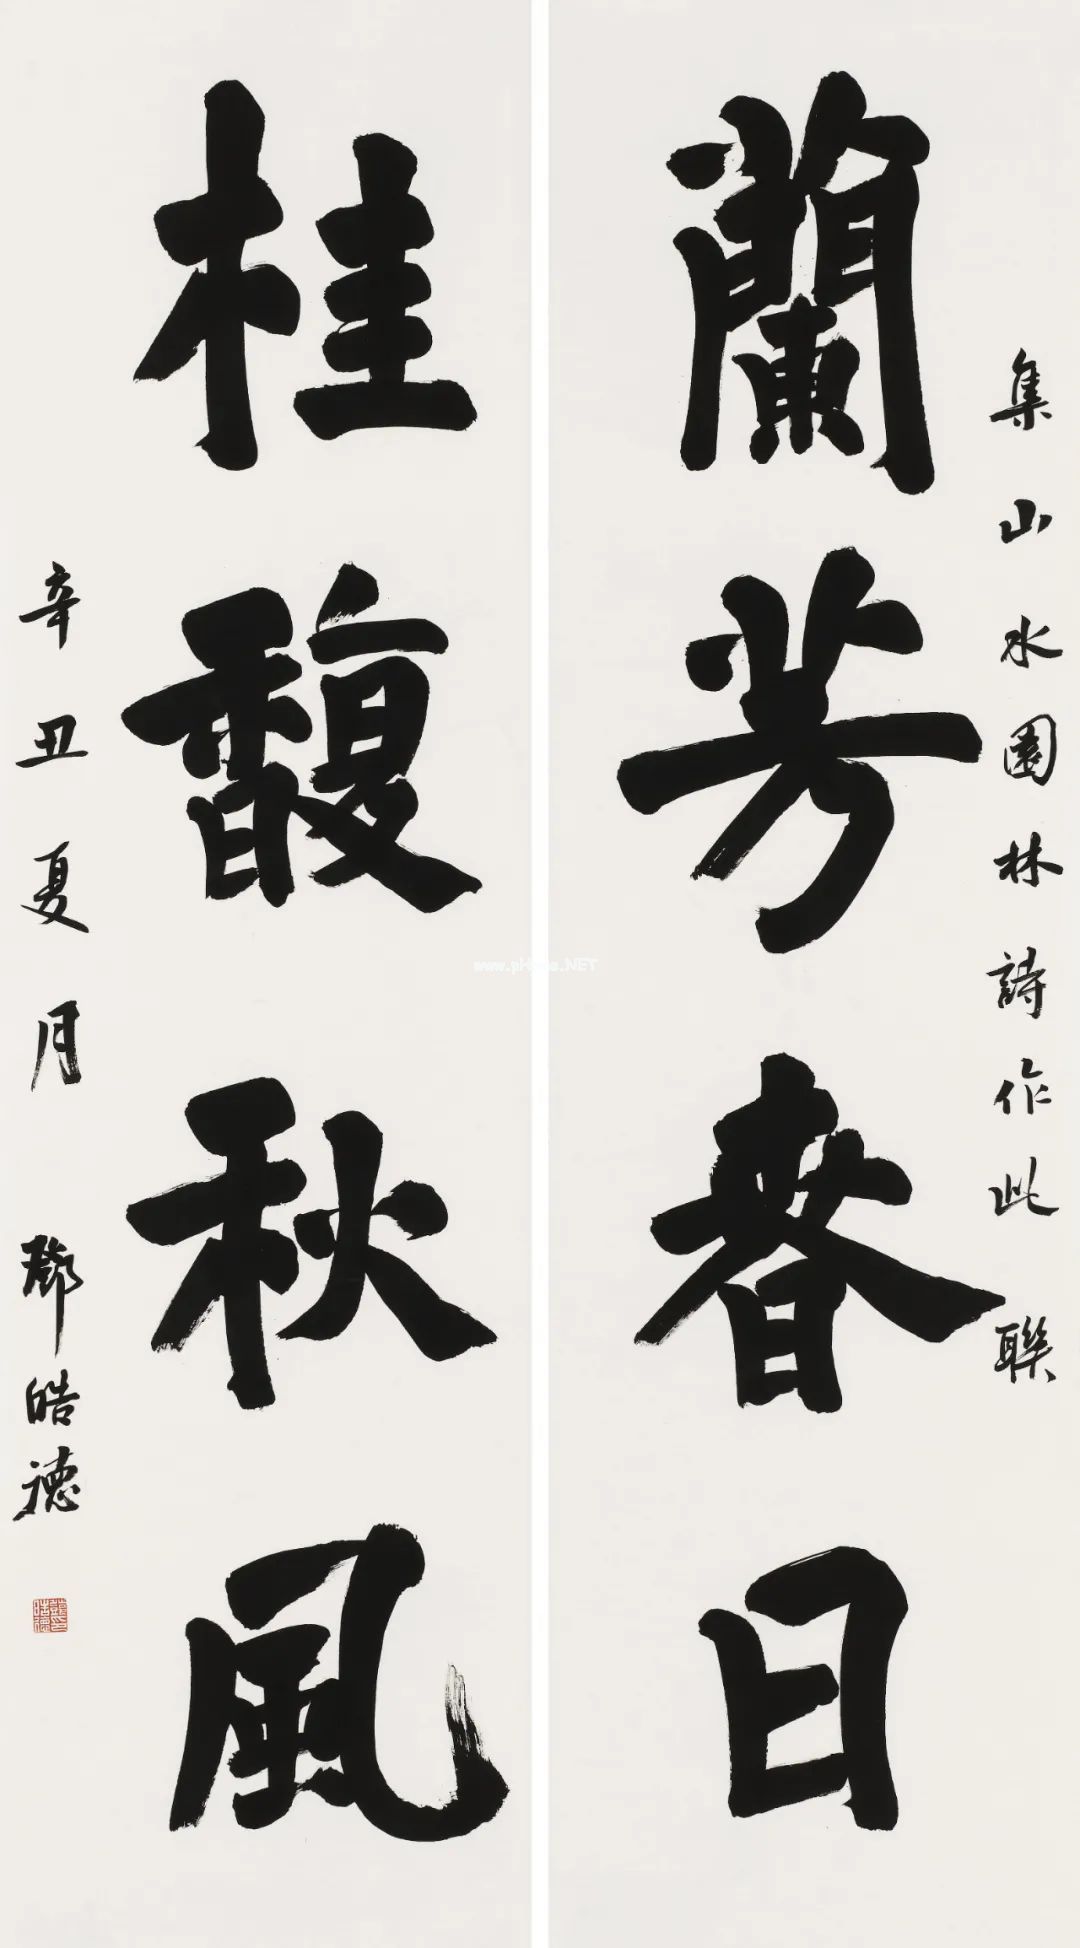 集山水園林詩作此聯
蘭芳春日
桂馥秋風
辛丑夏月 鄧皓德